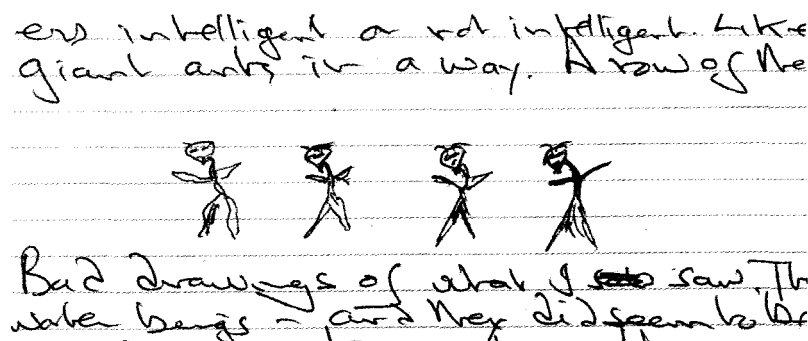 ers intelligent or not intelligent. Like
giant ants, in a way. A row of the
Bad drawings of what I saw. Th
water beings - and they did seem to be